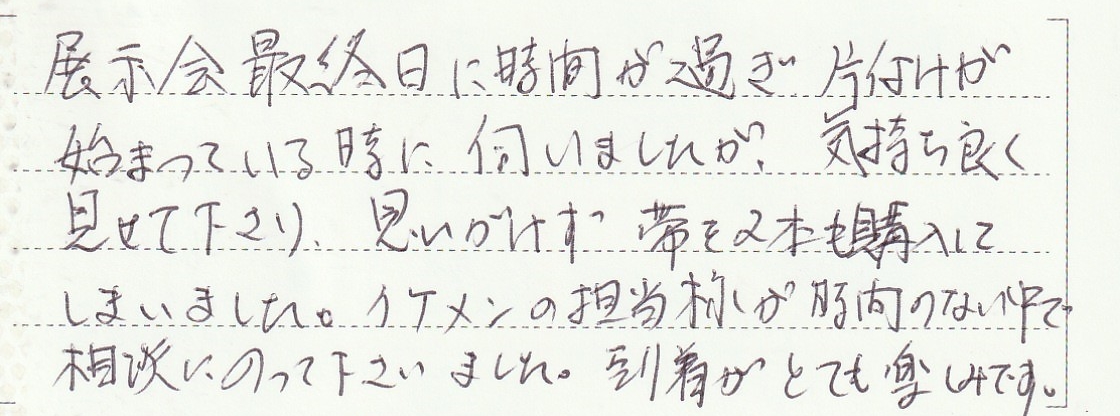 展示会最終日に時間が過ぎ 片付けが
始まっている時に伺いましたが、気持ち良く
見せて下さり、思いがけず 帯を2本も購入して
しまいました。イケメンの担当様が時間のない中で
相談にのって下さいました。到着がとても楽しみです。